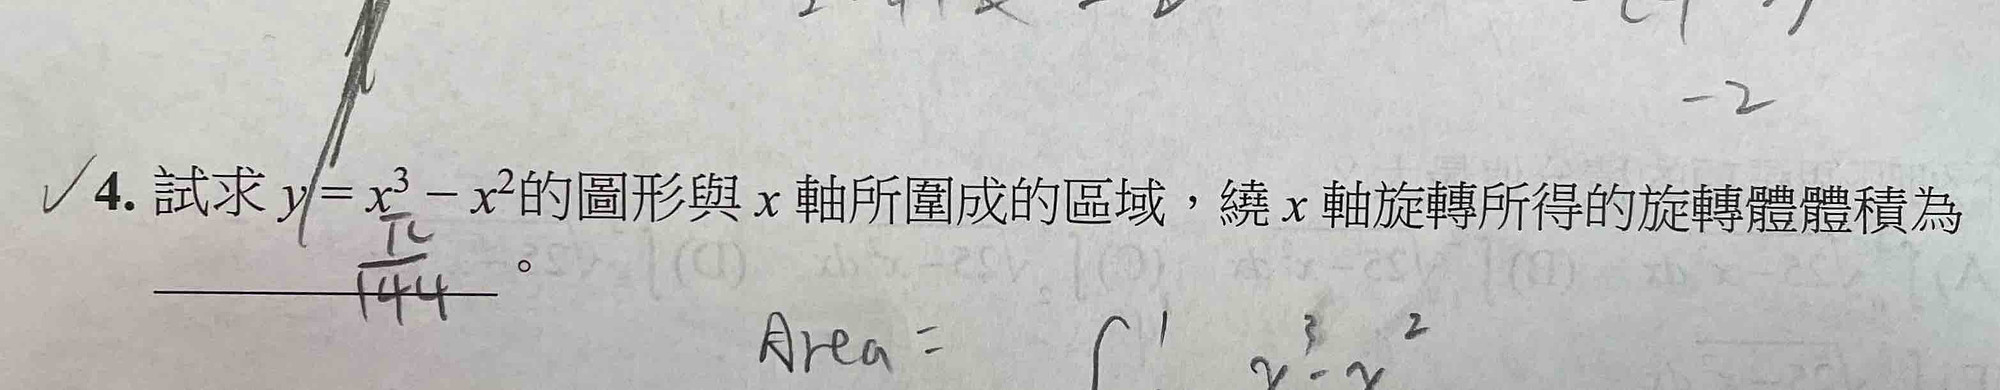 -2
✓4. 試求 y = x³ − x²的圖形與 x 軸所圍成的區域，繞 x 軸旋轉所得的旋轉體體積為
π/144 。
Area = ∫¹ x³-x²